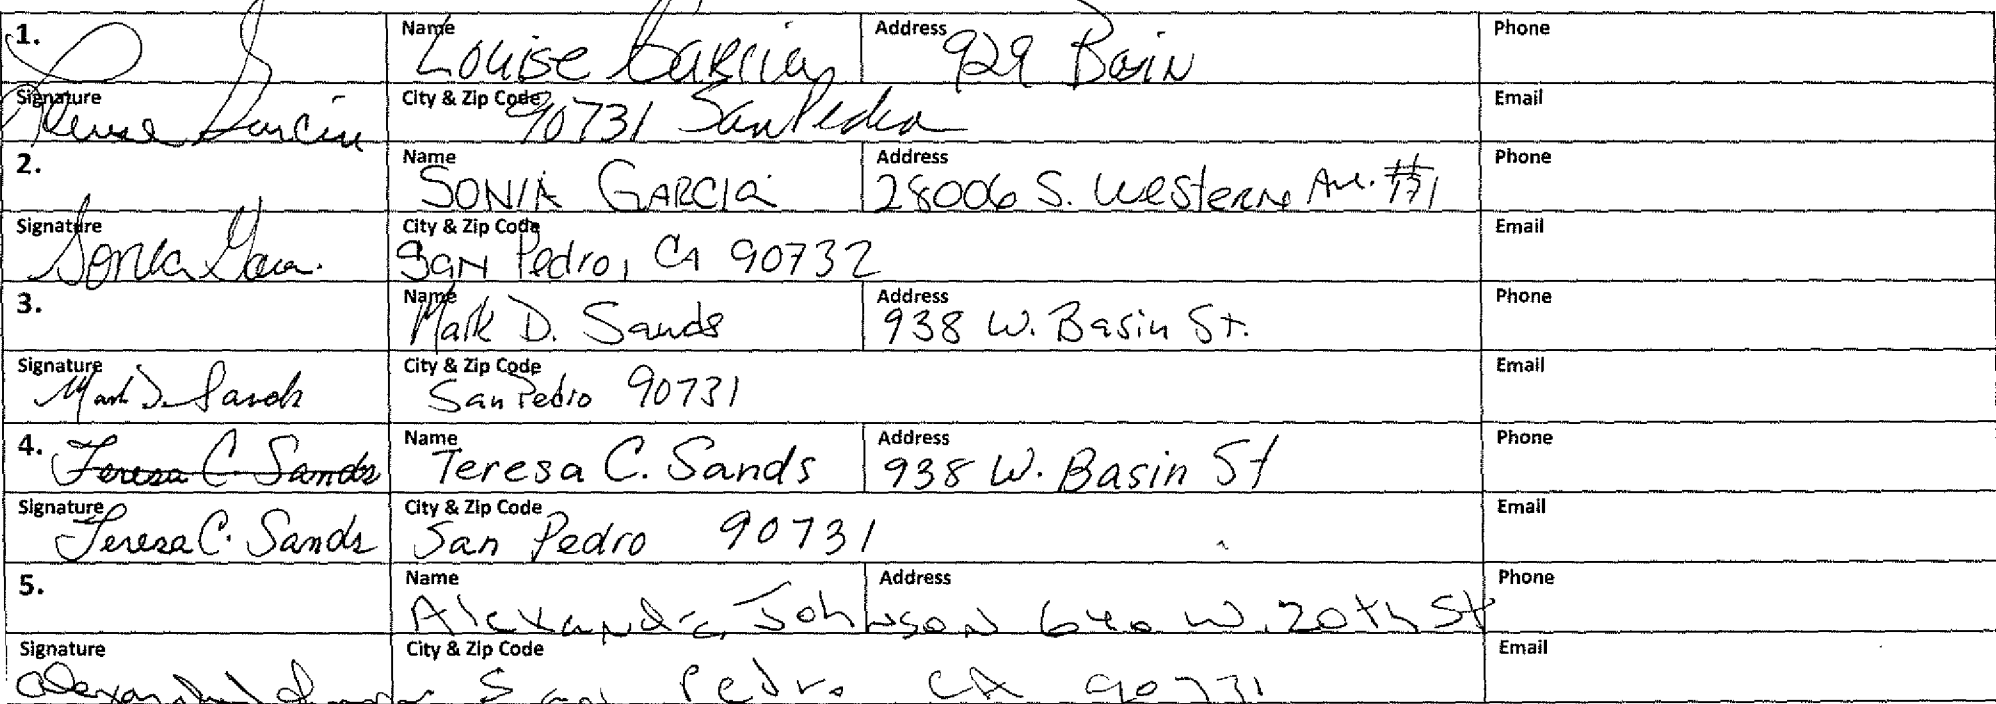 1. Name Louise Garcia Address 929 Basin Phone
Signature Louise Garcia City & Zip Code 90731 San Pedro Email
2. Name SONIA GARCIA Address 28006 S. Western Ave. #171 Phone
Signature Sonia City & Zip Code San Pedro, CA 90732 Email
3. Name Mark D. Sands Address 938 W. Basin St. Phone
Signature Mark D. Sands City & Zip Code San Pedro 90731 Email
4. Teresa C. Sands Name Teresa C. Sands Address 938 W. Basin St Phone
Signature Teresa C. Sands City & Zip Code San Pedro 90731 Email
5. Name Alexandra Johnson Address 640 W. 20th St Phone
Signature City & Zip Code San Pedro CA 90731 Email